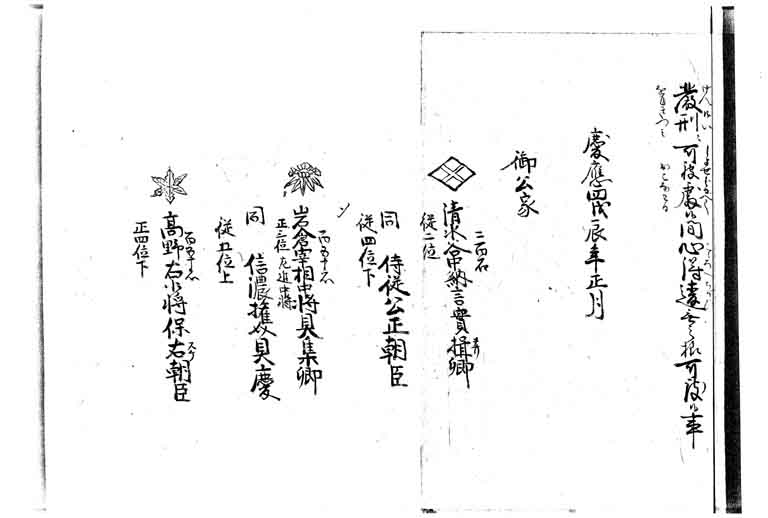 嚴刑ニ可被處候間心得違無之様可致候事
慶應四戊辰年正月
御公家
二百石
清水谷中納言實揖卿
従二位
同 侍従公正朝臣
従四位下
百五十石
岩倉宰相中将具集卿
正三位 左近中将
同 信濃権 具慶
従五位上
百五十石
高野右少将保右朝臣
正四位下